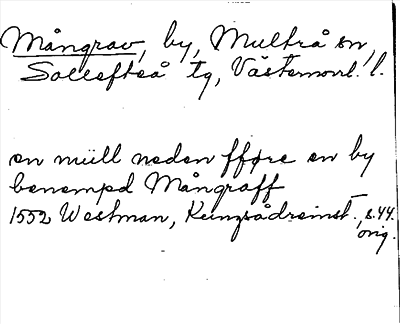 Mångrav, by, Multrå sn,
Sollefteå tg, Västernorrl. l.
en müll neden fføre en by
benempd Mångraff
1552 Westman, Kungsådreinst., s. 44.
orig.